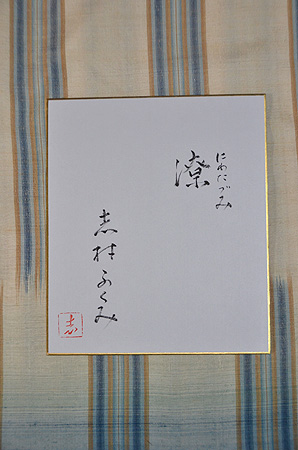 にわたづみ
潦
志村ふくみ
志